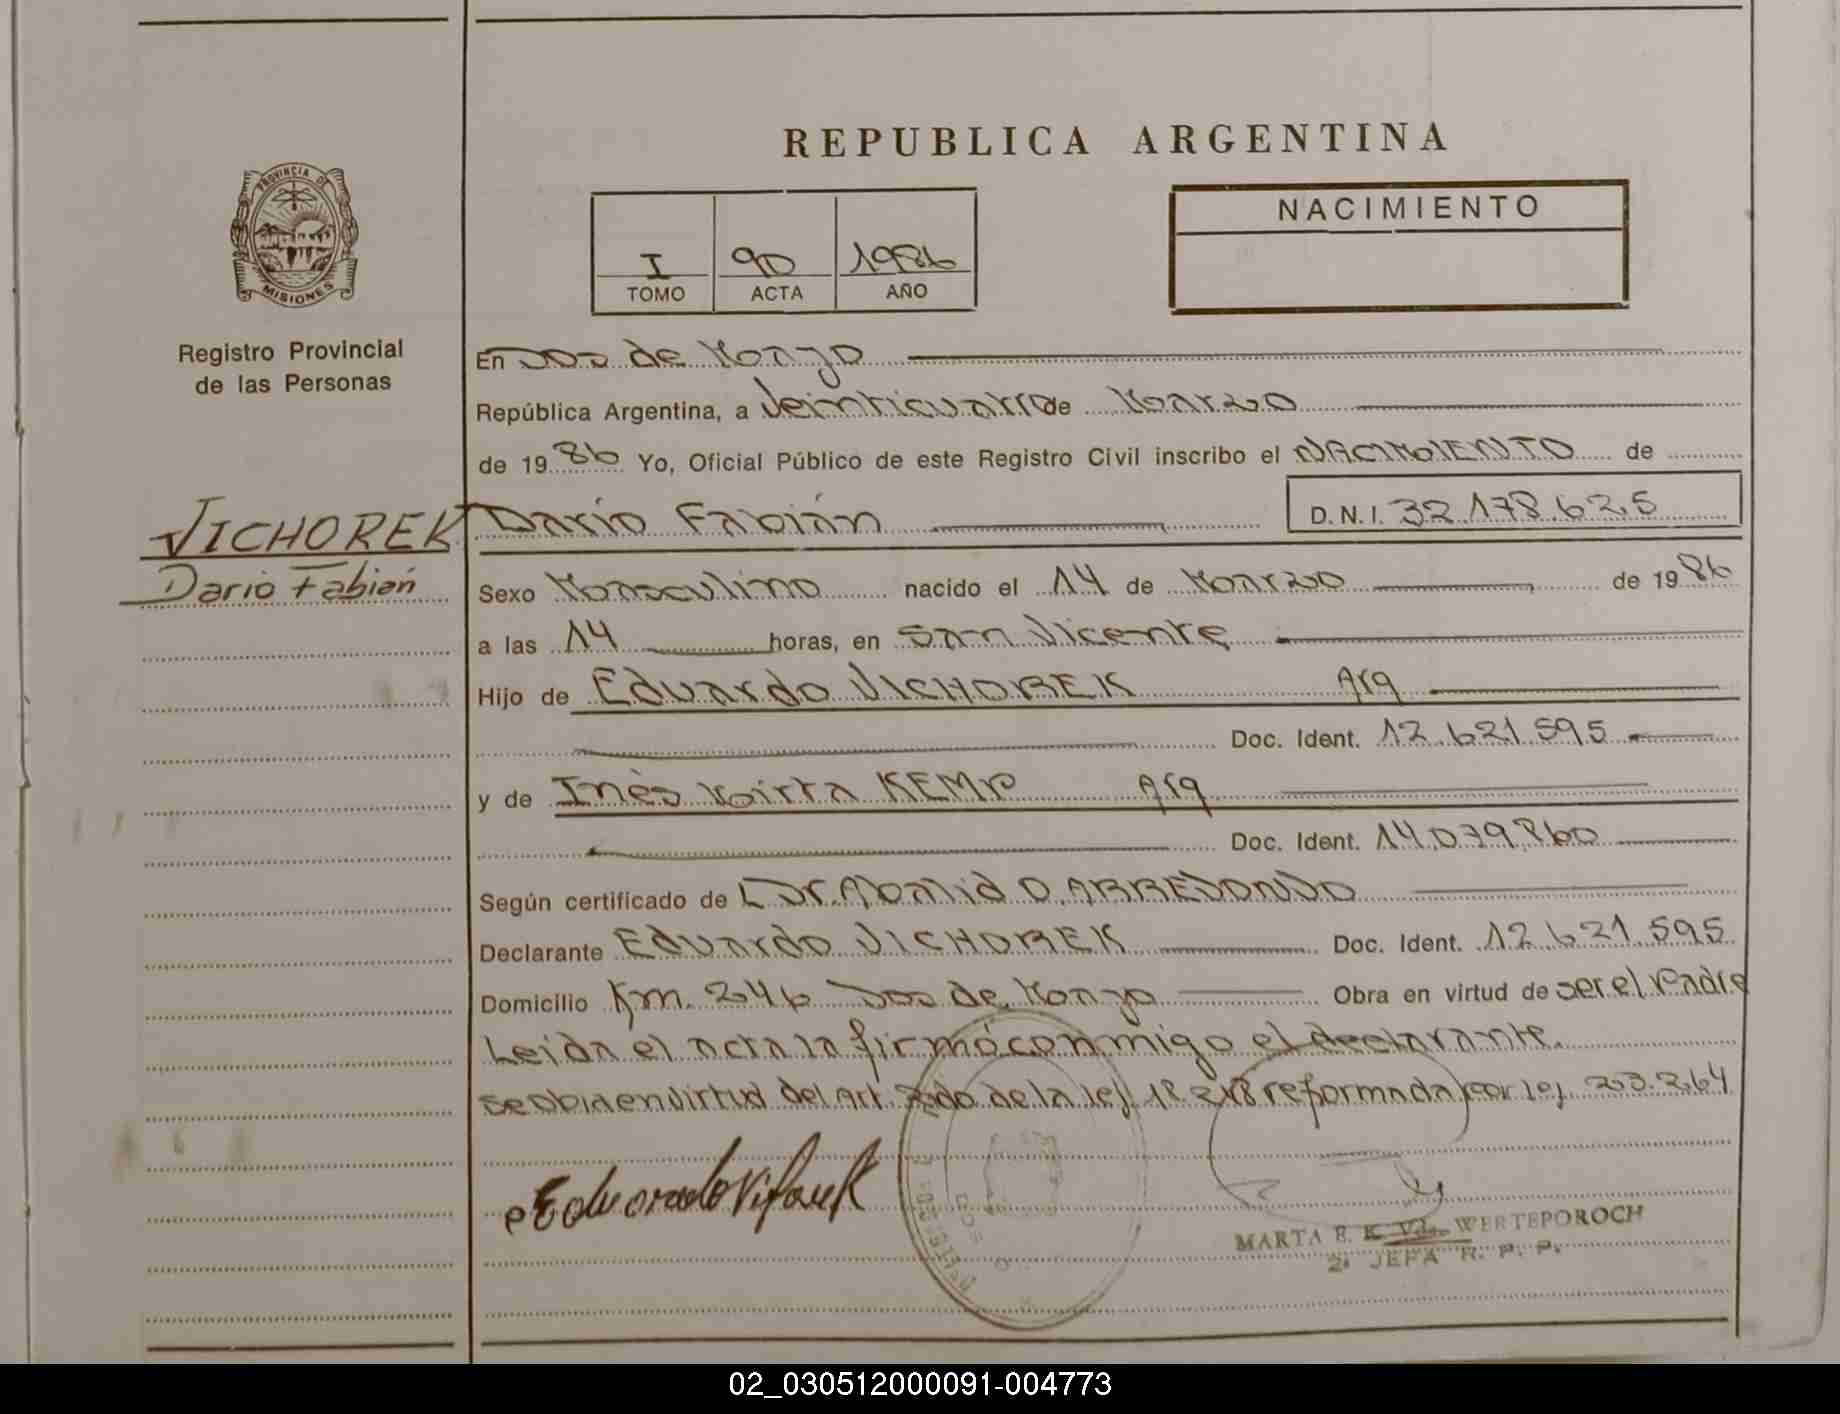 REPUBLICA ARGENTINA
PROVINCIA DE MISIONES
Registro Provincial
de las Personas
I 90 1986
TOMO ACTA AÑO
NACIMIENTO
En Dos de Mayo
República Argentina, a Veinticuatro de Marzo
de 19 86 Yo, Oficial Público de este Registro Civil inscribo el NACIMIENTO de
VICHOREK
Dario Fabián
Darío Fabián D.N.I. 32.178.625
Sexo Masculino nacido el 14 de Marzo de 19 86
a las 14 horas, en San Vicente
Hijo de Eduardo VICHOREK Arg
Doc. Ident. 12.621.595
y de Inés Mirta KEMP Arg
Doc. Ident. 14.079.860
Según certificado de Dr. D. ARREDONDO
Declarante Eduardo VICHOREK Doc. Ident. 12.621.595
Domicilio Km. 246 Dos de Mayo Obra en virtud de ser el Padre
Leida el acta la firmó conmigo el declarante.
en virtud del Art. 2do de la ley 18.248 reformada por ley 23.264
Eduardo
MARTA E. K. Vda. WERTEPOROCH
2a JEFA R. P. P.
02_030512000091-004773